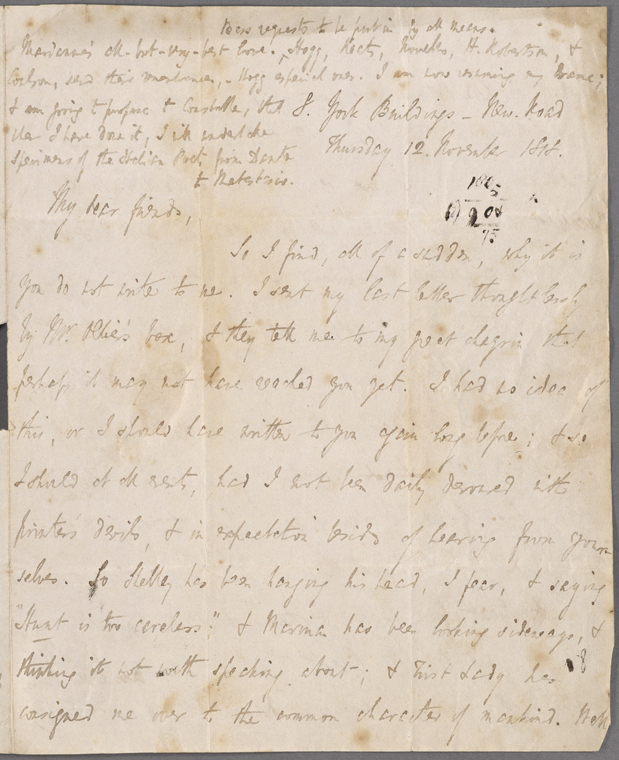 requests to be put in by all means.
Marianne's all-but-very-best love. Hogg, Keats, Novello, H. Robertson, &
Coulson, send their remembrances, - Hogg especial ones. I am now resuming my Drama;
& am going to propose to Constable, that
when I have done it, I will undertake
specimens of the Italian Poets from Dante
to Metastasio.
8. York Buildings - New Road
Thursday 12. November 1818.
My dear friends,
So I find, all of a sudden, why it is
you do not write to me. I sent my last letter thoughtlessly
by Mr. Ollier's box, & they tell me to my great chagrin that
perhaps it may not have reached you yet. I had no idea of
this, or I should have written to you again long before; & so
I should at all events, had I not been daily devoured with
printer's devils, & in expectation besides of hearing from your-
selves. So Shelley has been hanging his head, I fear, & saying
"Hunt is too careless"; & Marina has been looking sideways, &
thinking it not worth speaking about; & Third Lady has
consigned me over to the common character of mankind. Well